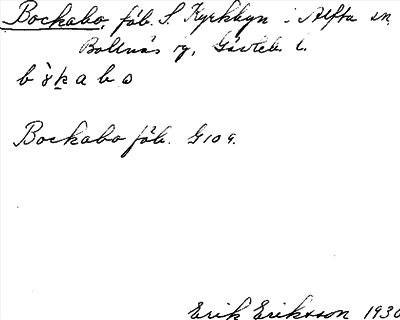 Bockabo, fäb. S. Kyrkbyn i Alfta sn,
Bollnäs tg, Gävleb. l.
Bockabo fäb. G 10 9.
Erik Eriksson 1930